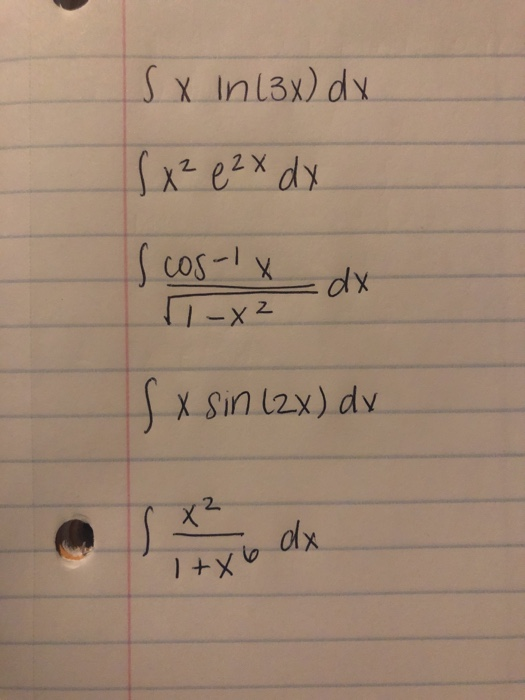 ∫ x ln(3x) dx
∫ x² e²ˣ dx
∫ cos⁻¹ x / √(1-x²) dx
∫ x sin(2x) dx
∫ x² / (1+x⁶) dx